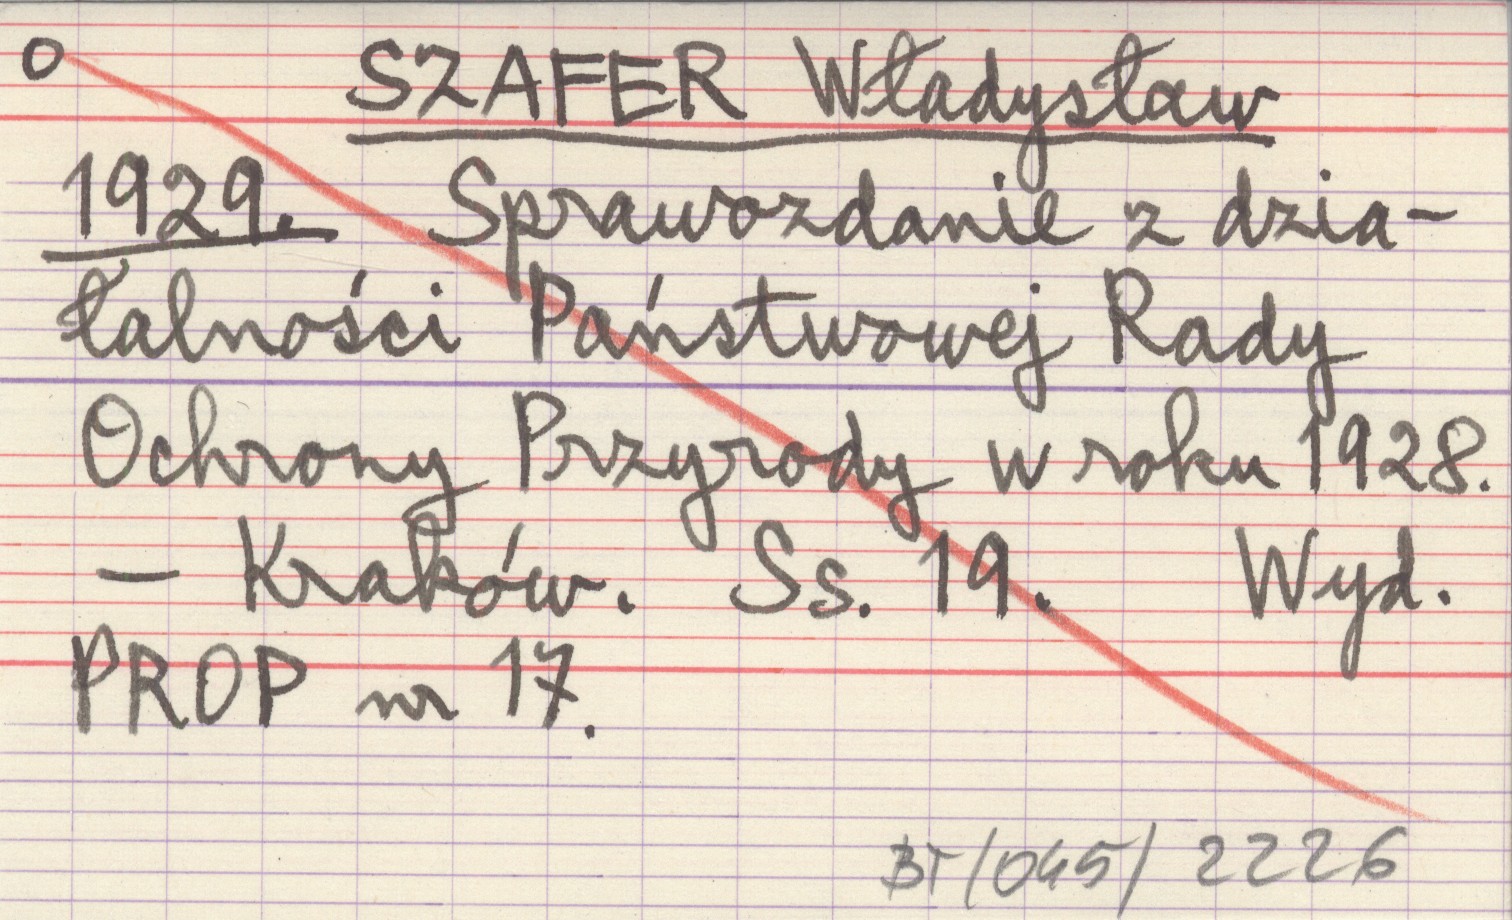 O SZAFER Władysław
1929. Sprawozdanie z dzia-
łalności Państwowej Rady
Ochrony Przyrody w roku 1928.
— Kraków. Ss. 19. Wyd.
PROP nr 17.
BT/045/2226